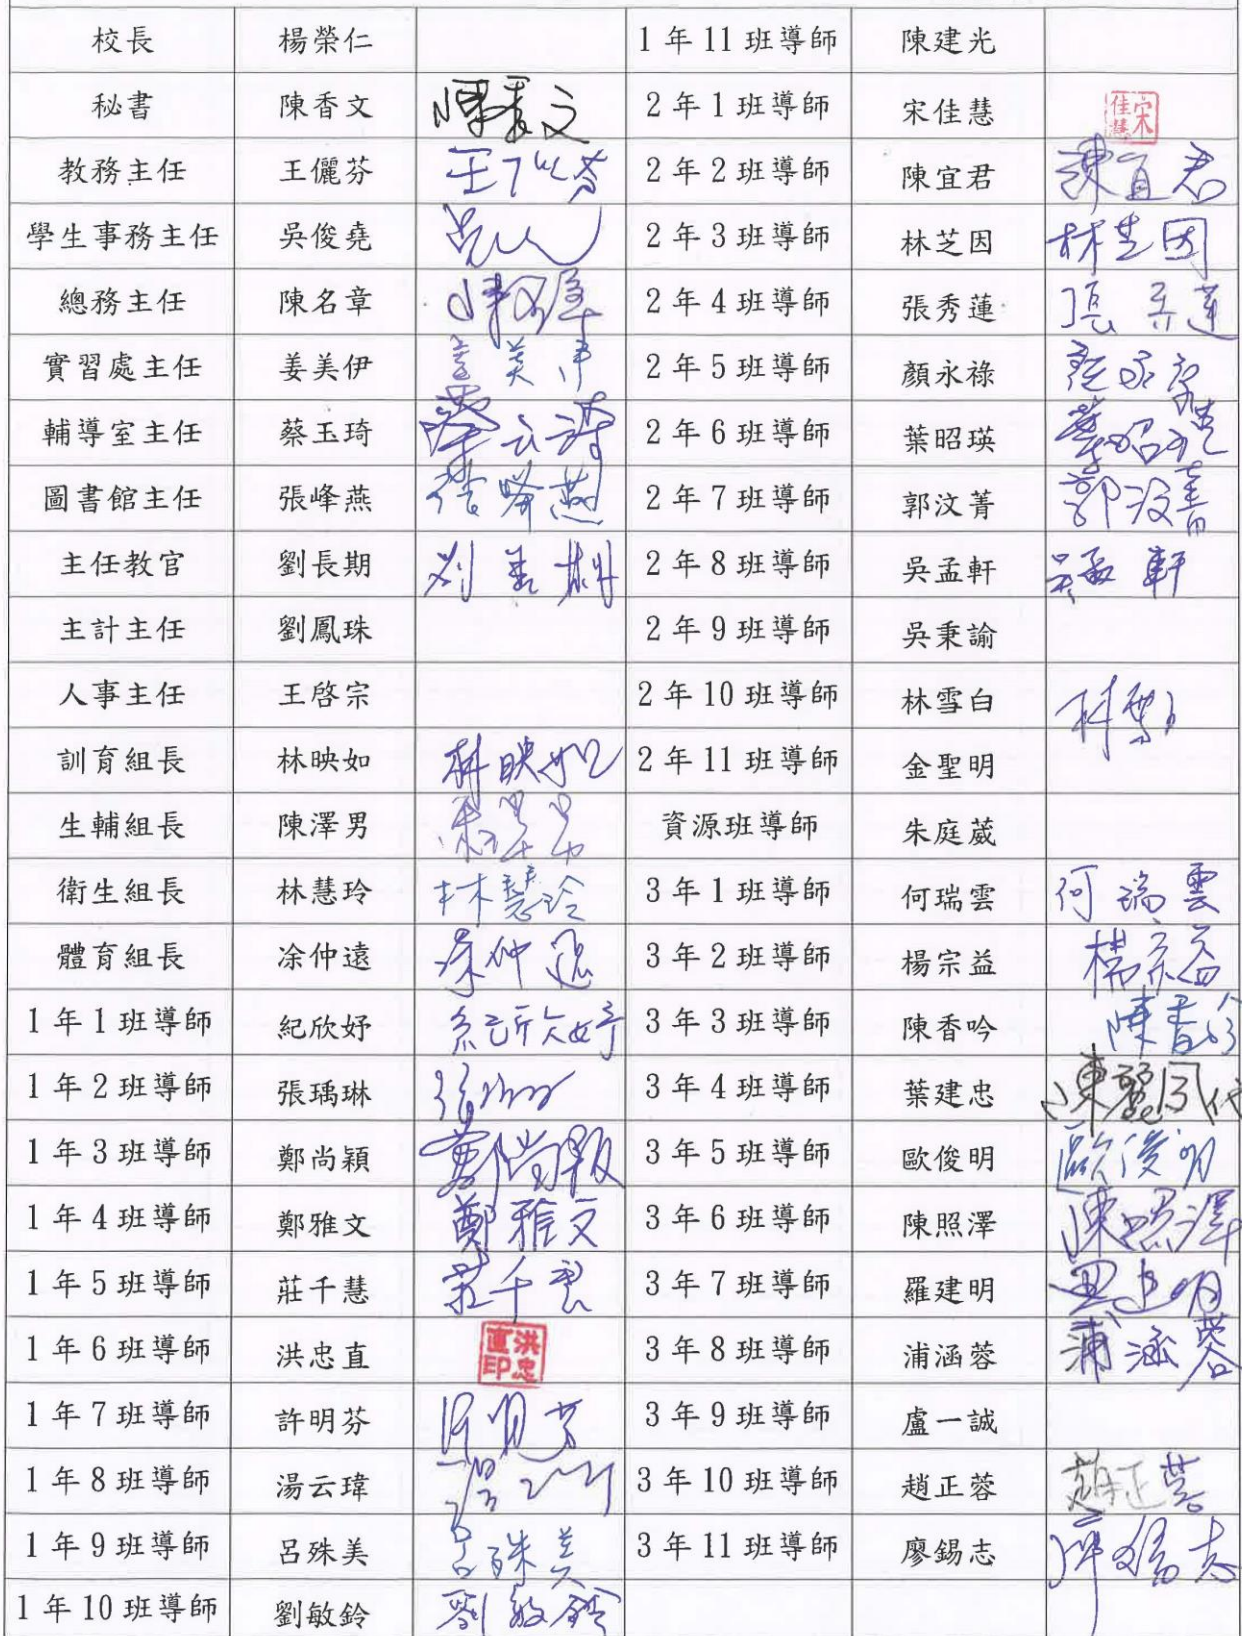 校長 楊榮仁 1年11班導師 陳建光
秘書 陳香文 陳香文 2年1班導師 宋佳慧 宋佳慧
教務主任 王儷芬 2年2班導師 陳宜君 陳宜君
學生事務主任 吳俊堯 2年3班導師 林芝因 林芝因
總務主任 陳名章 2年4班導師 張秀蓮 張秀蓮
實習處主任 姜美伊 姜美伊 2年5班導師 顏永祿 顏永祿
輔導室主任 蔡玉琦 蔡玉琦 2年6班導師 葉昭瑛 葉昭瑛
圖書館主任 張峰燕 張峰燕 2年7班導師 郭汶菁 郭汶菁
主任教官 劉長期 2年8班導師 吳孟軒 吳孟軒
主計主任 劉鳳珠 2年9班導師 吳秉諭
人事主任 王啓宗 2年10班導師 林雪白
訓育組長 林映如 林映如 2年11班導師 金聖明
生輔組長 陳澤男 資源班導師 朱庭葳
衛生組長 林慧玲 林慧玲 3年1班導師 何瑞雲 何瑞雲
體育組長 凃仲遠 凃仲遠 3年2班導師 楊宗益 楊宗益
1年1班導師 紀欣妤 紀欣妤 3年3班導師 陳香吟 陳香吟
1年2班導師 張瑀琳 3年4班導師 葉建忠 陳麗同代
1年3班導師 鄭尚穎 鄭尚穎 3年5班導師 歐俊明 歐俊明
1年4班導師 鄭雅文 鄭雅文 3年6班導師 陳照澤 陳照澤
1年5班導師 莊千慧 莊千慧 3年7班導師 羅建明
1年6班導師 洪忠直 洪忠直印 3年8班導師 浦涵蓉 浦涵蓉
1年7班導師 許明芬 許明芬 3年9班導師 盧一誠
1年8班導師 湯云瑋 3年10班導師 趙正蓉 趙正蓉
1年9班導師 呂殊美 呂殊美 3年11班導師 廖錫志 廖錫志
1年10班導師 劉敏鈴 劉敏鈴